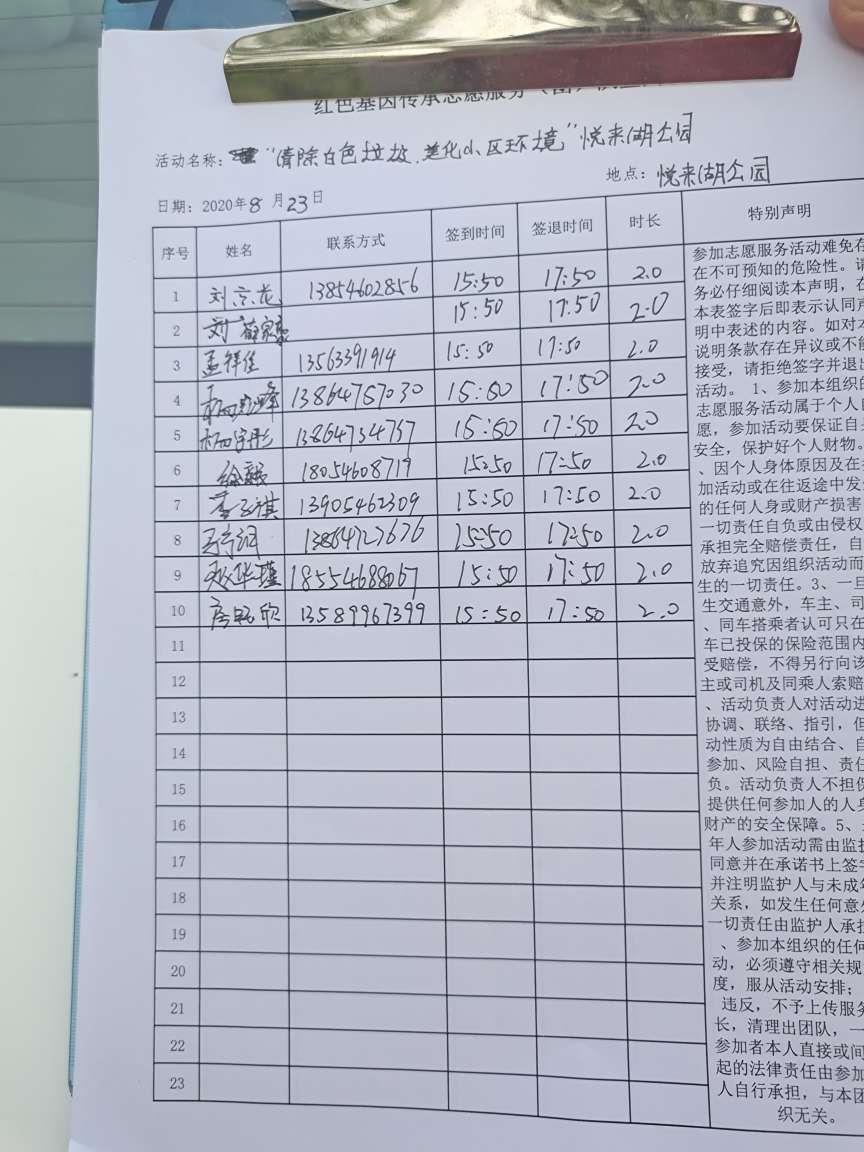 红色基因传承志愿服务
活动名称： “清除白色垃圾，美化小区环境”悦来湖公园
地点：悦来湖公园
日期：2020年8月23日
序号 姓名 联系方式 签到时间 签退时间 时长 特别声明
1 刘京龙 13854602856 15:50 17:50 2.0
2 刘 15:50 17:50 2.0
3 孟祥佳 13563391914 15:50 17:50 2.0
4 13864757030 15:50 17:50 2.0
5 杨宇彤 13864734757 15:50 17:50 2.0
6 18054608719 15:50 17:50 2.0
7 13905462309 15:50 17:50 2.0
8 13864727676 15:50 17:50 2.0
9 18554688067 15:50 17:50 2.0
10 13589967399 15:50 17:50 2.0
11
12
13
14
15
16
17
18
19
20
21
22
23
参加志愿服务活动难免存
在不可预知的危险性。请
务必仔细阅读本声明，在
本表签字后即表示认同声
明中表述的内容。如对本
说明条款存在异议或不能
接受，请拒绝签字并退出
活动。 1、参加本组织的
志愿服务活动属于个人自
愿，参加活动要保证自身
安全，保护好个人财物。
、因个人身体原因及在参
加活动或在往返途中发生
的任何人身或财产损害
一切责任自负或由侵权
承担完全赔偿责任，自
放弃追究因组织活动而
生的一切责任。3、一旦
生交通意外，车主、司
、同车搭乘者认可只在
车已投保的保险范围内
受赔偿，不得另行向该
主或司机及同乘人索赔
、活动负责人对活动进
协调、联络、指引，但
动性质为自由结合、自
参加、风险自担、责任
负。活动负责人不担保
提供任何参加人的人身
财产的安全保障。5、
年人参加活动需由监护
同意并在承诺书上签字
并注明监护人与未成年
关系，如发生任何意外
一切责任由监护人承担
、参加本组织的任何
动，必须遵守相关规
度，服从活动安排；
违反，不予上传服务
长，清理出团队，一
参加者本人直接或间
起的法律责任由参加
人自行承担，与本团
织无关。